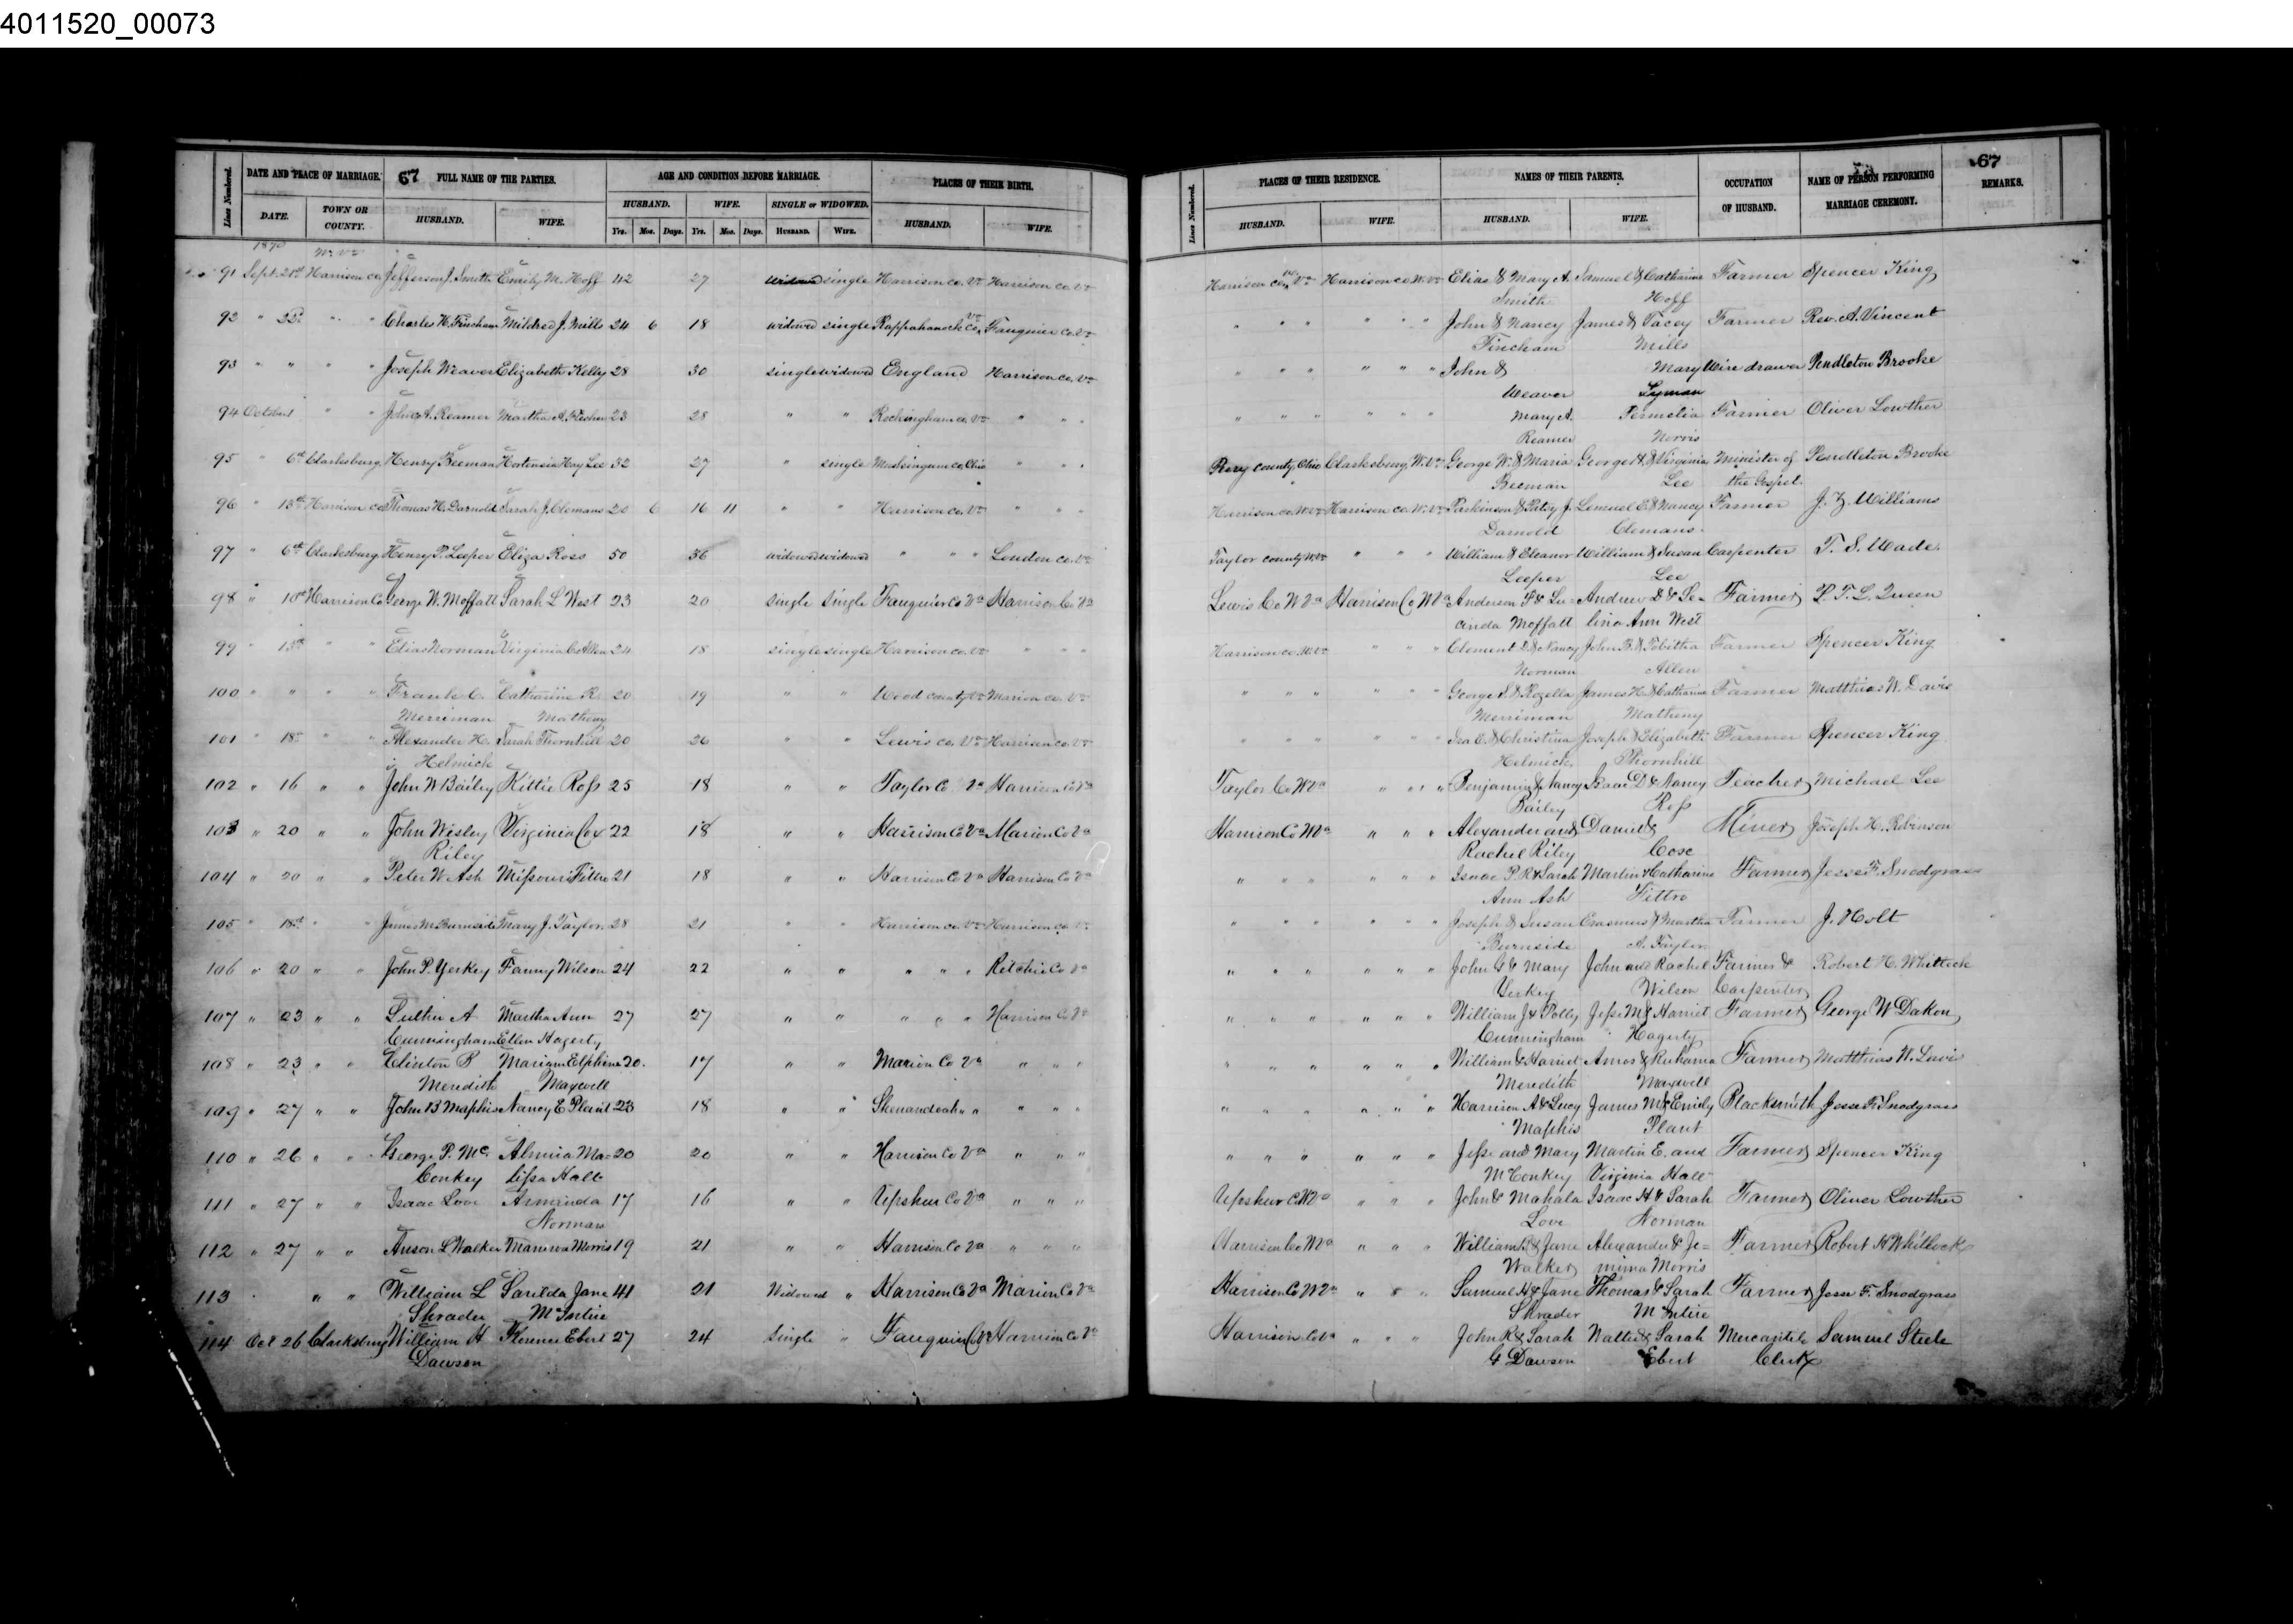 4011520_00073
67
67
Lines Numbered.
DATE AND PLACE OF MARRIAGE.
FULL NAME OF THE PARTIES.
AGE AND CONDITION BEFORE MARRIAGE.
PLACES OF THEIR BIRTH.
Lines Numbered.
PLACES OF THEIR RESIDENCE.
NAMES OF THEIR PARENTS.
OCCUPATION OF HUSBAND.
NAME OF PERSON PERFORMING MARRIAGE CEREMONY.
REMARKS.
DATE. TOWN OR COUNTY. HUSBAND. WIFE. HUSBAND. WIFE. SINGLE or WIDOWED. HUSBAND. WIFE. HUSBAND. WIFE. HUSBAND. WIFE.
Yrs. Mos. Days. Yrs. Mos. Days. HUSBAND. WIFE.
1870 W. Va
91 Sept. 21st Harrison co. Jefferson J. Smith Emily M. Hoff 42 27 widowed single Harrison co. Va Harrison co. Va Harrison co. W. Va Harrison co. W. Va Elias & Mary A. Samuel & Catharine Farmer Spencer King
Smith Hoff
92 " 22d " " Charles H. Fincham Mildred J. Mills 24 6 18 widowed single Rappahanock Co. Va Fauquier Co. Va " " " " " " John & Nancy James & Tacey Farmer Rev. A. Vincent
Fincham Mills
93 " " " " Joseph Weaver Elizabeth Kelly 28 30 single widowed England Harrison co. Va " " " " " " John & Mary Wire drawer Pendleton Brooke
Weaver Lyman
94 October 1 " " John A. Reamer Martha A. 23 28 " " Rockingham co. Va " " " " " " " " " Mary A. Permelia Farmer Oliver Lowther
Reamer Norris
95 " 6th Clarksburg Henry Beeman Hortensia Hay Lee 32 27 " single Muskingum co. Ohio " " " Perry county, Ohio Clarksburg, W. Va George W. & Maria George H. & Virginia Minister of Pendleton Brooke
Beeman Lee the Gospel.
96 " 13th Harrison co. Thomas H. Darnold Sarah J. Clemans 20 6 16 11 " " Harrison co. Va " " " Harrison co. W. Va Harrison co. W. Va Parkinson & Patsy J. Lemuel E. & Nancy Farmer J. Z. Williams
Darnold Clemans.
97 " 6th Clarksburg Henry P. Leeper Eliza Ross 50 36 widowed widowed " " " Loudon co. Va Taylor county W. Va " " " William & Eleanor William & Susan Carpenter T. S. Wade.
Leeper Lee
98 " 10th Harrison Co George W. Moffatt Sarah L West 23 20 single single Fauquier Co Va Harrison Co Va Lewis Co W Va Harrison Co W Va Anderson F & Lu= Andrew D & Se= Farmer L. T. L. Queen
cinda Moffatt lina Ann West
99 " 13th " " Elias Norman Virginia C. Allen 24 18 single single Harrison co. Va " " " Harrison co. W. Va " " " Clement D. & Nancy John B. & Tabitha Farmer Spencer King
Norman Allen
100 " " " " Frank C. Catharine R. 20 19 " " Wood county Va Marion co. Va " " " " " " George S. & Rozella James H. & Catharine Farmer Matthias W. Davis
Merriman Matheny Merriman Matheny
101 " 18th " " Alexander H. Sarah Thornhill 20 26 " " Lewis co. Va Harrison co. Va " " " " " " Isa C. & Christina Joseph & Elizabeth Farmer Spencer King
Helmick Helmick Thornhill
102 " 16 " " John W Bailey Kittie Ross 25 18 " " Taylor Co Va Harrison Co Va Taylor Co W Va " " " Benjamin & Nancy Isaac D & Nancy Teacher Michael Lee
Bailey Ross
103 " 20 " " John Wesley Virginia Cox 22 18 " " Harrison Co Va Marion Co Va Harrison Co W Va " " " Alexander and Daniel & Miner Joseph H. Robinson
Riley Rachel Riley Cose
104 " 20 " " Peter W Ash Missouri Fittro 21 18 " " Harrison Co Va Harrison Co Va " " " " " " Isaac P. R & Sarah Martin & Catharine Farmer Jesse F. Snodgrass
Ann Ash Fittro
105 " 18th " " James M. Burnside Mary J. Taylor 28 21 " " Harrison co. Va Harrison co. Va " " " " " " Joseph & Susan Erasmus & Martha Farmer J. Holt
Burnside A. Taylor
106 " 20 " " John P. Yerkey Fanny Wilson 24 22 " " " " " Ritchie Co Va " " " " " " John G & Mary John and Rachel Farmer & Robert H. Whitlock
Yerkey Wilson Carpenter
107 " 23 " " Luther A Martha Ann 27 27 " " " " " Harrison Co Va " " " " " " William J & Polly Jesse M & Harriet Farmer George W Dakon
Cunningham Ellen Hagerty Cunningham Hagerty
108 " 23 " " Clinton R Mariam Elphina 20. 17 " " Marion Co Va " " " " " " " " " William & Harriet Amos & Ruhama Farmer Matthias W. Davis
Meredith Maxwell Meredith Maxwell
109 " 27 " " John B Maphis Nancy E Plant 23 18 " " Shenandoah " " " " " " " " " " " Harrison A & Lucy James M & Emily Blacksmith Jesse F. Snodgrass
Maphis Plant
110 " 26 " " George P. Mc Almira Ma= 20 20 " " Harrison Co Va " " " " " " " " " Jesse and Mary Martin E. and Farmer Spencer King
Conkey lissa Hall McConkey Virginia Hall
111 " 27 " " Isaac Love Arminda 17 16 " " Upshur Co Va " " " Upshur Co W Va " " " John & Mahala Isaac H & Sarah Farmer Oliver Lowther
Norman Love Norman
112 " 27 " " Anson L Walker Manerva Morris 19 21 " " Harrison Co Va " " " Harrison Co W Va " " " William R & Jane Alexander & Je= Farmer Robert H Whitlock
Walker mima Morris
113 " " William L Sarilda Jane 41 21 Widowed " Harrison Co Va Marion Co Va Harrison Co W Va " " " Samuel H & Jane Thomas & Sarah Farmer Jesse F. Snodgrass
Shrader McIntire Shrader McIntire
114 Oct 26 Clarksburg William H Florence Ebert 27 24 Single " Fauquier Co Va Harrison Co Va Harrison Co Va " " " John R & Sarah Walter & Sarah Mercantile Samuel Steele
Dawson G Dawson Ebert Clerk